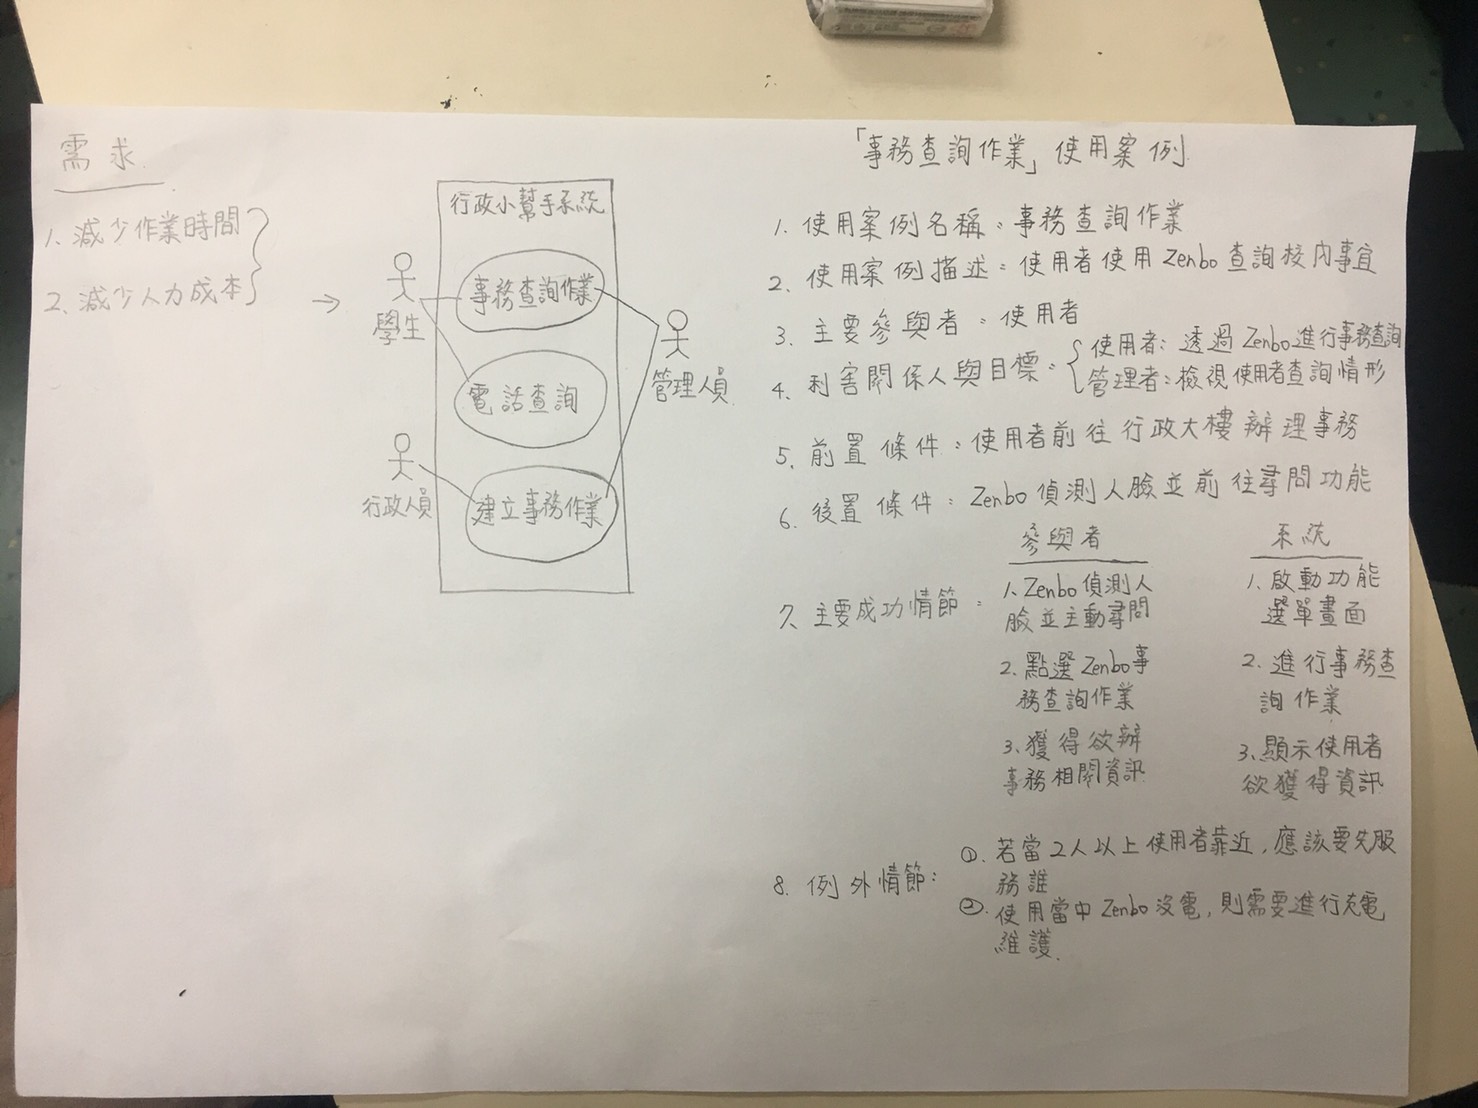 需求
1、減少作業時間
2、減少人力成本
行政小幫手系統
事務查詢作業
學生
電話查詢
管理人員
行政人員
建立事務作業
「事務查詢作業」使用案例
1. 使用案例名稱：事務查詢作業
2. 使用案例描述：使用者使用Zenbo查詢校內事宜
3. 主要參與者：使用者
4. 利害關係人與目標：
使用者：透過Zenbo進行事務查詢
管理者：檢視使用者查詢情形
5、前置條件：使用者前往行政大樓辦理事務
6、後置條件：Zenbo偵測人臉並前往尋問功能
參與者 系統
7、主要成功情節：
1、Zenbo偵測人
臉並主動尋問
1、啟動功能
選單畫面
2、點選Zenbo事
務查詢作業
2、進行事務查
詢作業
3、獲得欲辦
事務相關資訊
3、顯示使用者
欲獲得資訊
8、例外情節：
①、若當2人以上使用者靠近，應該要先服
務誰
②、使用當中Zenbo沒電，則需要進行充電
維護.